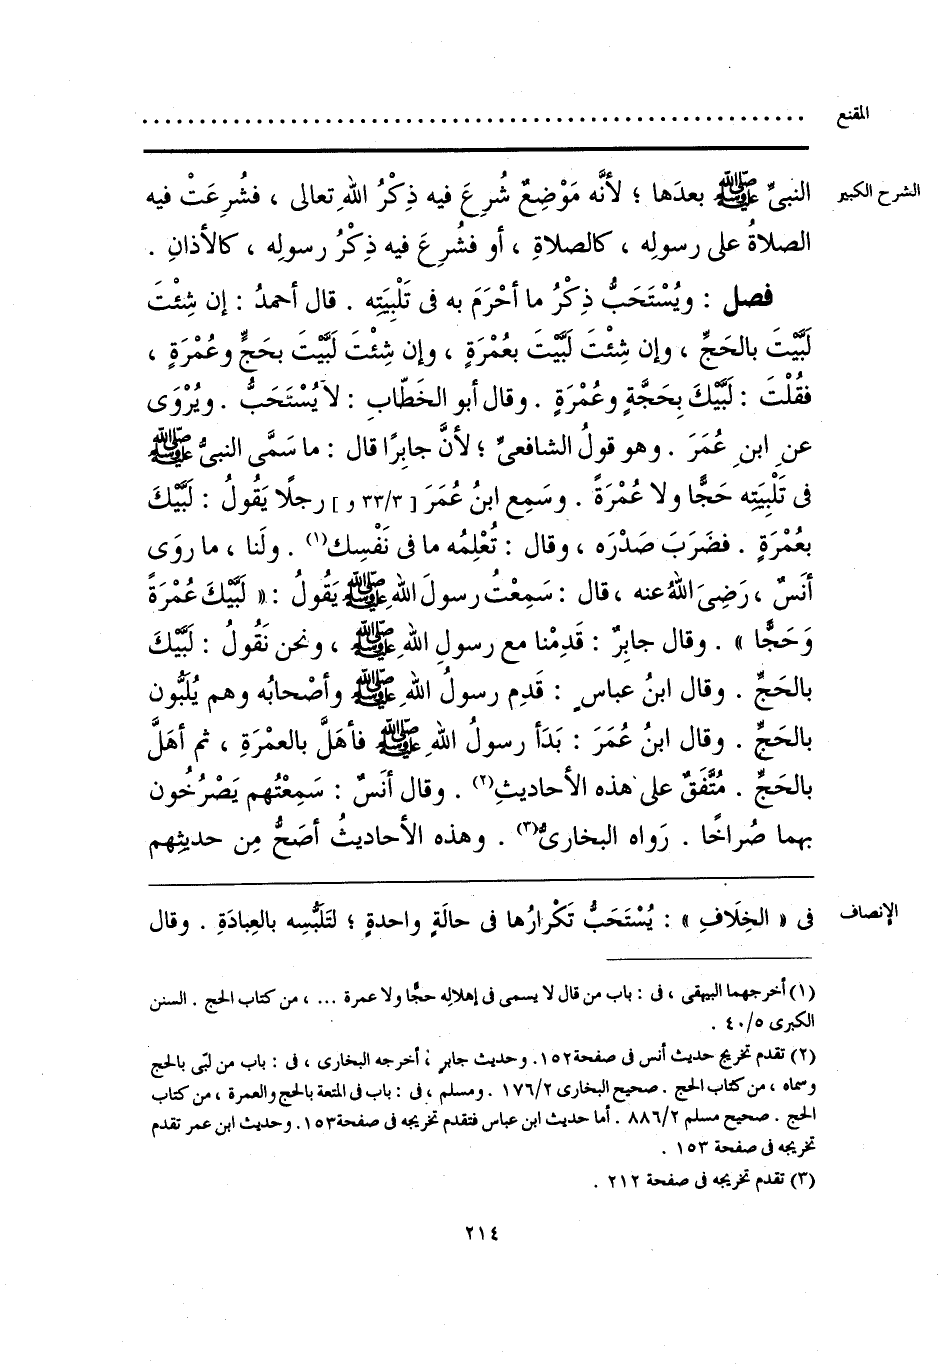 المقنع ............................................................
الشرح الكبير النبىِّ ﷺ بعدَها ؛ لأنَّه مَوْضِعٌ شُرِعَ فيه ذِكْرُ اللهِ تعالى ، فشُرِعَتْ فيه
الصلاةُ على رسولِه ، كالصلاةِ ، أو فشُرِعَ فيه ذِكْرُ رسولِه ، كالأذانِ .
فصل : ويُسْتَحَبُّ ذِكْرُ ما أحْرَمَ به فى تَلْبِيَتِه . قال أحمدُ : إن شِئْتَ
لَبَّيْتَ بالحَجِّ ، وإن شِئْتَ لَبَّيْتَ بعُمْرَةٍ ، وإن شِئْتَ لَبَّيْتَ بحَجٍّ وعُمْرَةٍ ،
فقُلْتَ : لَبَّيْكَ بحَجَّةٍ وعُمْرَةٍ . وقال أبو الخَطّابِ : لا يُسْتَحَبُّ . ويُرْوَى
عن ابنِ عُمَرَ . وهو قولُ الشافعىِّ ؛ لأنَّ جابِرًا قال : ما سَمَّى النبىُّ ﷺ
فى تَلْبِيَتِه حَجًّا ولا عُمْرَةً . وسَمِع ابنُ عُمَرَ [ ٣٣/٣ و ] رجلًا يَقُولُ : لَبَّيْكَ
بعُمْرَةٍ . فضَرَبَ صَدْرَه ، وقال : تُعْلِمُه ما فى نَفْسِك(١) . ولَنا ، ما روَى
أنَسٌ ، رَضِىَ اللهُ عنه ، قال : سَمِعْتُ رسولَ اللهِ ﷺ يَقُولُ : « لَبَّيْكَ عُمْرَةً
وَحَجًّا » . وقال جابِرٌ : قَدِمْنا مع رسولِ اللهِ ﷺ ، ونحن نَقُولُ : لَبَّيْكَ
بالحَجِّ . وقال ابنُ عباسٍ : قَدِم رسولُ اللهِ ﷺ وأصْحابُه وهم يُلَبُّون
بالحَجِّ . وقال ابنُ عُمَرَ : بَدَأ رسولُ اللهِ ﷺ فأهَلَّ بالعمْرَةِ ، ثم أهَلَّ
بالحَجِّ . مُتَّفَقٌ على هذه الأحاديثِ(٢) . وقال أنَسٌ : سَمِعْتُهم يَصْرُخُون
بهما صُراخًا . رَواه البخارىُّ(٣) . وهذه الأحاديثُ أصَحُّ مِن حديثِهم
الإنصاف فى « الخِلَافِ » : يُسْتَحَبُّ تَكْرارُها فى حالَةٍ واحدةٍ ؛ لتَلَبُّسِه بالعِبادَةِ . وقال
(١) أخرجهما البيهقى ، فى : باب من قال لا يسمى فى إهلاله حجًّا ولا عمرة ... ، من كتاب الحج . السنن
الكبرى ٤٠/٥ .
(٢) تقدم تخريج حديث أنس فى صفحة ١٥٢. وحديث جابرٍ ، أخرجه البخارى ، فى : باب من لبّى بالحج
وسماه ، من كتاب الحج . صحيح البخارى ١٧٦/٢ . ومسلم ، فى : باب فى المتعة بالحج والعمرة ، من كتاب
الحج . صحيح مسلم ٨٨٦/٢ . أما حديث ابن عباس فتقدم تخريجه فى صفحة ١٥٣. وحديث ابن عمر تقدم
تخريجه فى صفحة ١٥٣ .
(٣) تقدم تخريجه فى صفحة ٢١٢ .
٢١٤